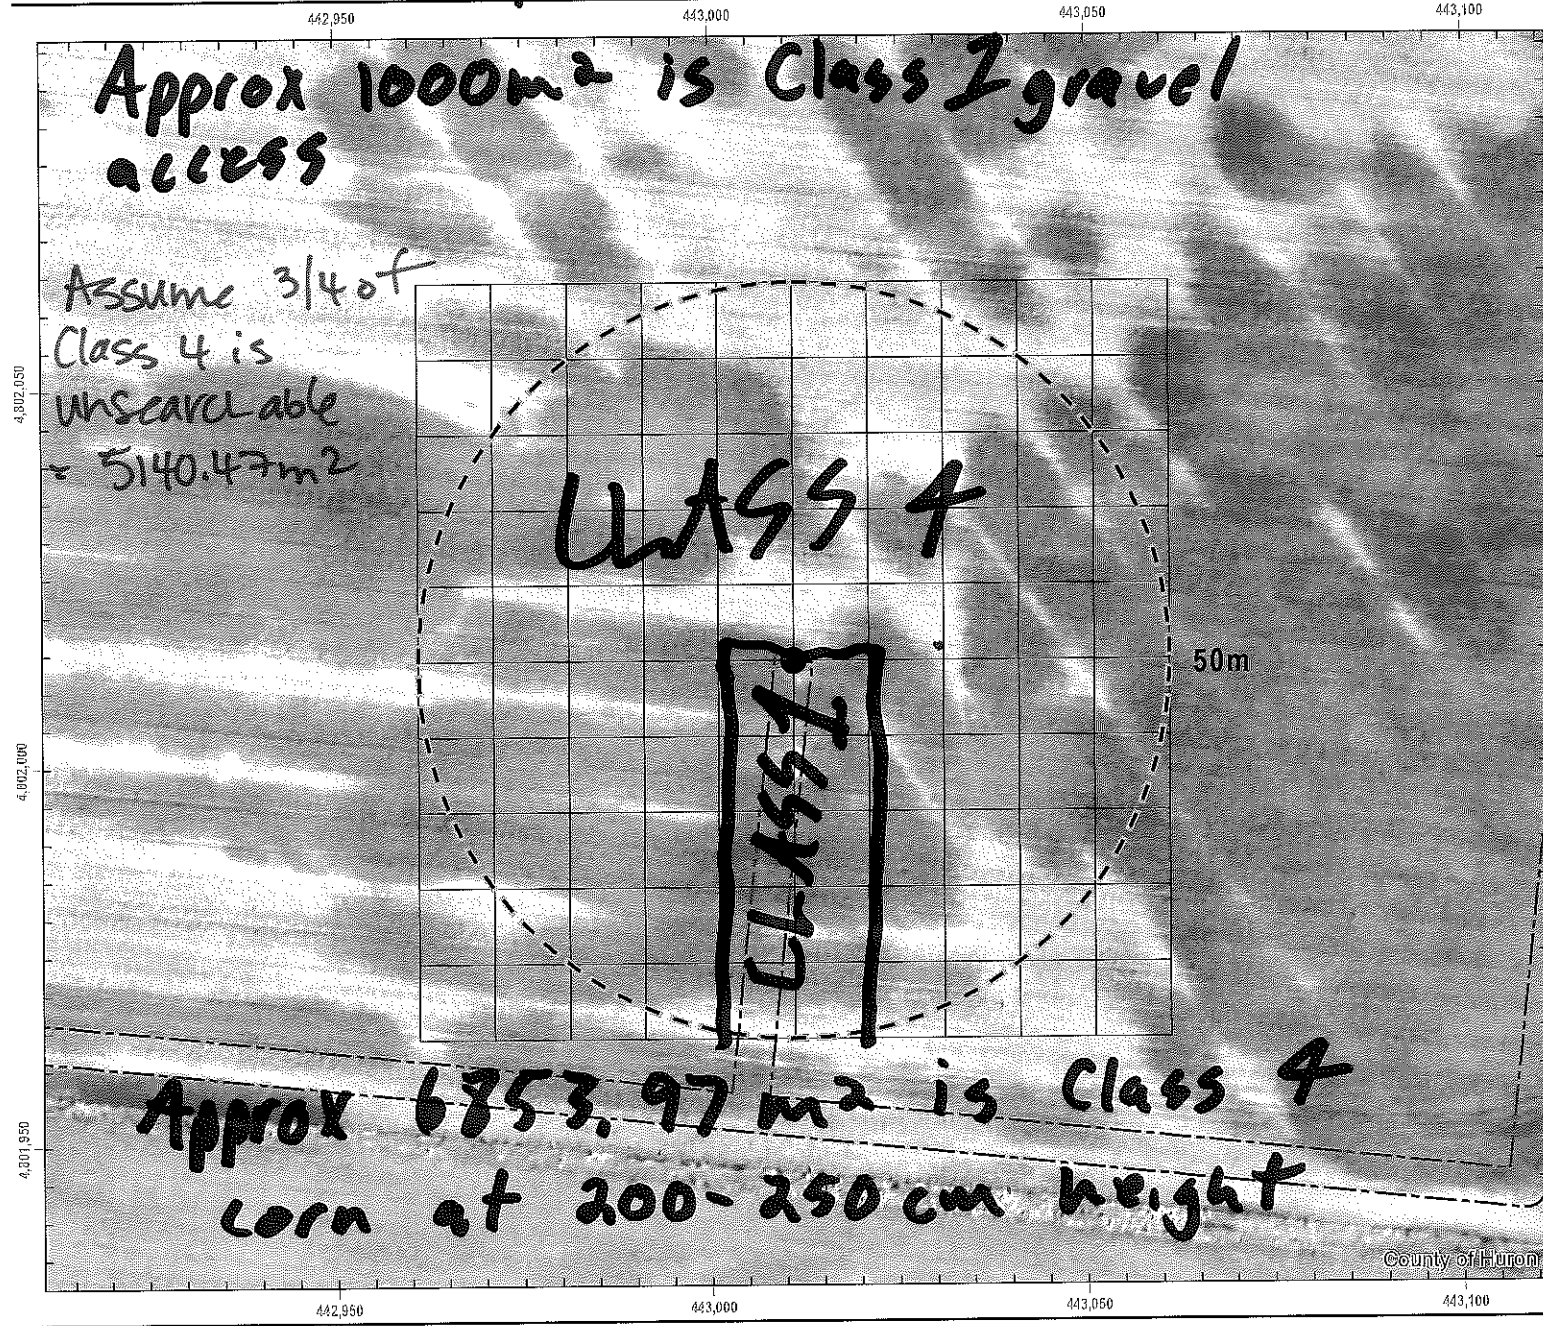 442,950 443,000 443,050 443,100
Approx 1000m² is Class I gravel
access
Assume 3/4 of
Class 4 is
unsearchable
= 5140.47m²
4,802,050
CLASS 4
50m
CLASS I
4,802,000
Approx 6853.97 m² is Class 4
corn at 200-250cm height
4,801,950
County of Huron
442,950 443,000 443,050 443,100